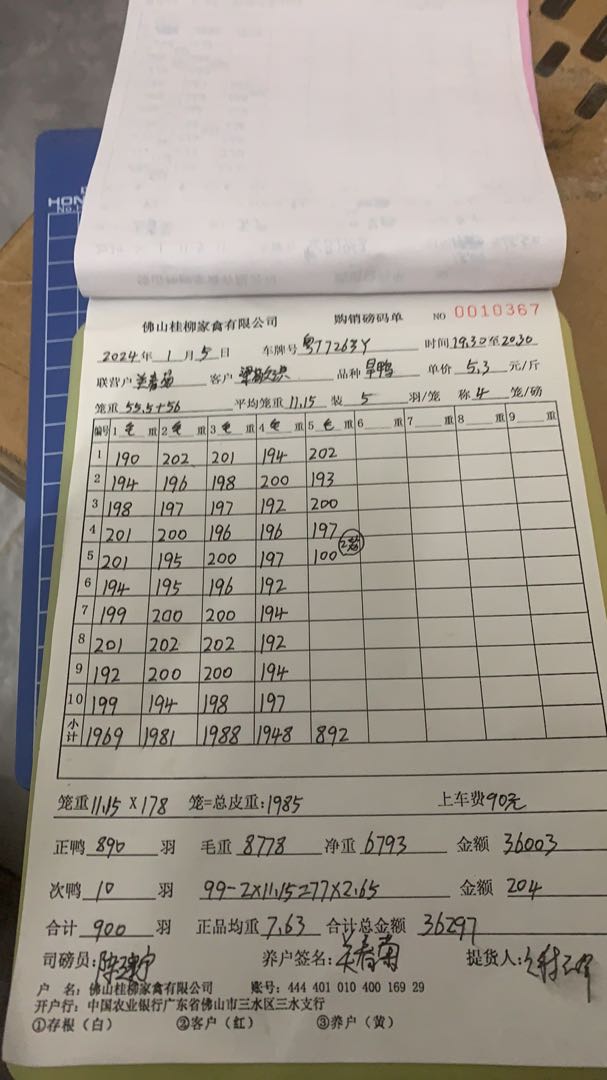 HON
No.
佛山桂柳家禽有限公司 购销磅码单 NO 0010367
2024年 1月 5日 车牌号 粤T7263Y 时间 19.30至2030
联营户 关春菊 客户 品种 旱鸭 单价 5.3 元/斤
笼重 55.5+56 平均笼重 11.15 装 5 羽/笼 称 4 笼/磅
编号 1毛重 2毛重 3毛重 4毛重 5毛重 6重 7重 8重 9重
1 190 202 201 194 202
2 194 196 198 200 193
3 198 197 197 192 200
4 201 200 196 196 197
5 201 195 200 197 100 2笼
6 194 195 196 192
7 199 200 200 194
8 201 202 202 192
9 192 200 200 194
10 199 194 198 197
小计 1969 1981 1988 1948 892
笼重 11.15 X 178 笼=总皮重: 1985 上车费 90元
正鸭 890 羽 毛重 8778 净重 6793 金额 36003
次鸭 10 羽 99-2X11.15=77X2.65 金额 204
合计 900 羽 正品均重 7.63 合计总金额 36297
司磅员: 养户签名: 关春菊 提货人:
户 名: 佛山桂柳家禽有限公司 账号: 444 401 010 400 169 29
开户行: 中国农业银行广东省佛山市三水区三水支行
①存根（白） ②客户（红） ③养户（黄）